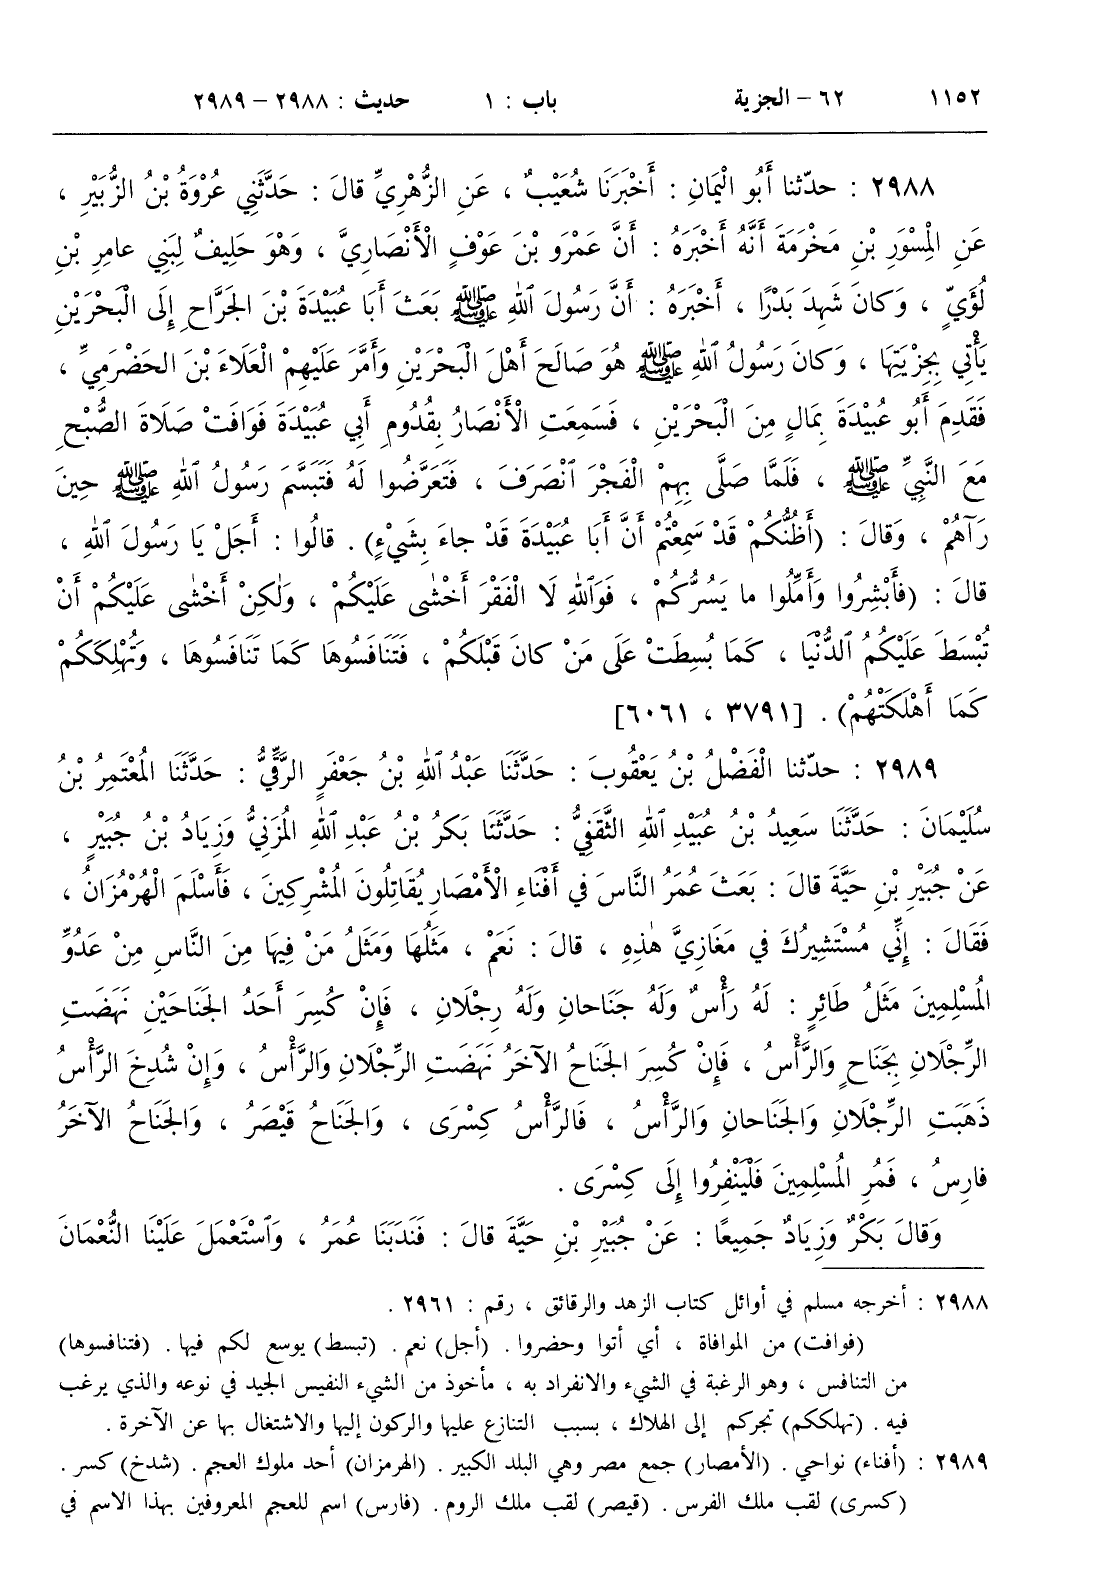 ١١٥٢ ٦٢ – الجزية باب : ١ حديث : ٢٩٨٨ – ٢٩٨٩
٢٩٨٨ : حدّثنا أَبُو الْيَمَانِ : أَخْبَرَنَا شُعَيْبٌ ، عَنِ الزُّهْرِيِّ قالَ : حَدَّثَنِي عُرْوَةُ بْنُ الزُّبَيْرِ ،
عَنِ الْمِسْوَرِ بْنِ مَخْرَمَةَ أَنَّهُ أَخْبَرَهُ : أَنَّ عَمْرَو بْنَ عَوْفٍ الْأَنْصَارِيَّ ، وَهْوَ حَلِيفٌ لِبَنِي عامِرِ بْنِ
لُؤَيٍّ ، وَكانَ شَهِدَ بَدْرًا ، أَخْبَرَهُ : أَنَّ رَسُولَ ٱللهِ ﷺ بَعَثَ أَبَا عُبَيْدَةَ بْنَ الجَرَّاحِ إِلَى الْبَحْرَيْنِ
يَأْتِي بِجِزْيَتِهَا ، وَكانَ رَسُولُ ٱللهِ ﷺ هُوَ صَالَحَ أَهْلَ الْبَحْرَيْنِ وَأَمَّرَ عَلَيْهِمْ الْعَلَاءَ بْنَ الحَضْرَمِيِّ ،
فَقَدِمَ أَبُو عُبَيْدَةَ بِمَالٍ مِنَ الْبَحْرَيْنِ ، فَسَمِعَتِ الْأَنْصَارُ بِقُدُومِ أَبِي عُبَيْدَةَ فَوَافَتْ صَلَاةَ الصُّبْحِ
مَعَ النَّبِيِّ ﷺ ، فَلَمَّا صَلَّى بِهِمْ الْفَجْرَ ٱنْصَرَفَ ، فَتَعَرَّضُوا لَهُ فَتَبَسَّمَ رَسُولُ ٱللهِ ﷺ حِينَ
رَآهُمْ ، وَقالَ : (أَظُنُّكُمْ قَدْ سَمِعْتُمْ أَنَّ أَبَا عُبَيْدَةَ قَدْ جاءَ بِشَيْءٍ) . قالُوا : أَجَلْ يَا رَسُولَ ٱللهِ ،
قالَ : (فَأَبْشِرُوا وَأَمِّلُوا ما يَسُرُّكُمْ ، فَوَٱللهِ لَا الْفَقْرَ أَخْشٰى عَلَيْكُمْ ، وَلٰكِنْ أَخْشٰى عَلَيْكُمْ أَنْ
تُبْسَطَ عَلَيْكُمُ ٱلدُّنْيَا ، كَمَا بُسِطَتْ عَلَى مَنْ كانَ قَبْلَكُمْ ، فَتَنَافَسُوهَا كَمَا تَنَافَسُوهَا ، وَتُهْلِكَكُمْ
كَمَا أَهْلَكَتْهُمْ) . [٣٧٩١ ، ٦٠٦١]
٢٩٨٩ : حدّثنا الْفَضْلُ بْنُ يَعْقُوبَ : حَدَّثَنَا عَبْدُ ٱللهِ بْنُ جَعْفَرٍ الرَّقِّيُّ : حَدَّثَنَا الْمُعْتَمِرُ بْنُ
سُلَيْمَانَ : حَدَّثَنَا سَعِيدُ بْنُ عُبَيْدِ ٱللهِ الثَّقَفِيُّ : حَدَّثَنَا بَكْرُ بْنُ عَبْدِ ٱللهِ الْمُزَنِيُّ وَزِيَادُ بْنُ جُبَيْرٍ ،
عَنْ جُبَيْرِ بْنِ حَيَّةَ قالَ : بَعَثَ عُمَرُ النَّاسَ في أَفْنَاءِ الْأَمْصَارِ يُقَاتِلُونَ الْمُشْرِكِينَ ، فَأَسْلَمَ الْهُرْمُزَانُ ،
فَقَالَ : إِنِّي مُسْتَشِيرُكَ في مَغَازِيَّ هٰذِهِ ، قالَ : نَعَمْ ، مَثَلُهَا وَمَثَلُ مَنْ فِيهَا مِنَ النَّاسِ مِنْ عَدُوِّ
الْمُسْلِمِينَ مَثَلُ طَائِرٍ : لَهُ رَأْسٌ وَلَهُ جَنَاحانِ وَلَهُ رِجْلَانِ ، فَإِنْ كُسِرَ أَحَدُ الجَنَاحَيْنِ نَهَضَتِ
الرِّجْلَانِ بِجَنَاحٍ وَالرَّأْسُ ، فَإِنْ كُسِرَ الجَنَاحُ الآخَرُ نَهَضَتِ الرِّجْلَانِ وَالرَّأْسُ ، وَإِنْ شُدِخَ الرَّأْسُ
ذَهَبَتِ الرِّجْلَانِ وَالجَنَاحانِ وَالرَّأْسُ ، فَالرَّأْسُ كِسْرَى ، وَالجَنَاحُ قَيْصَرُ ، وَالجَنَاحُ الآخَرُ
فارِسُ ، فَمُرِ الْمُسْلِمِينَ فَلْيَنْفِرُوا إِلَى كِسْرَى .
وَقالَ بَكْرٌ وَزِيَادٌ جَمِيعًا : عَنْ جُبَيْرِ بْنِ حَيَّةَ قالَ : فَنَدَبَنَا عُمَرُ ، وَٱسْتَعْمَلَ عَلَيْنَا النُّعْمَانَ
٢٩٨٨ : أخرجه مسلم في أوائل كتاب الزهد والرقائق ، رقم : ٢٩٦١ .
(فوافت) من الموافاة ، أي أتوا وحضروا . (أجل) نعم . (تبسط) يوسع لكم فيها . (فتنافسوها)
من التنافس ، وهو الرغبة في الشيء والانفراد به ، مأخوذ من الشيء النفيس الجيد في نوعه والذي يرغب
فيه . (تهلككم) تجركم إلى الهلاك ، بسبب التنازع عليها والركون إليها والاشتغال بها عن الآخرة .
٢٩٨٩ : (أفناء) نواحي . (الأمصار) جمع مصر وهي البلد الكبير . (الهرمزان) أحد ملوك العجم . (شدخ) كسر .
(كسرى) لقب ملك الفرس . (قيصر) لقب ملك الروم . (فارس) اسم للعجم المعروفين بهذا الاسم في